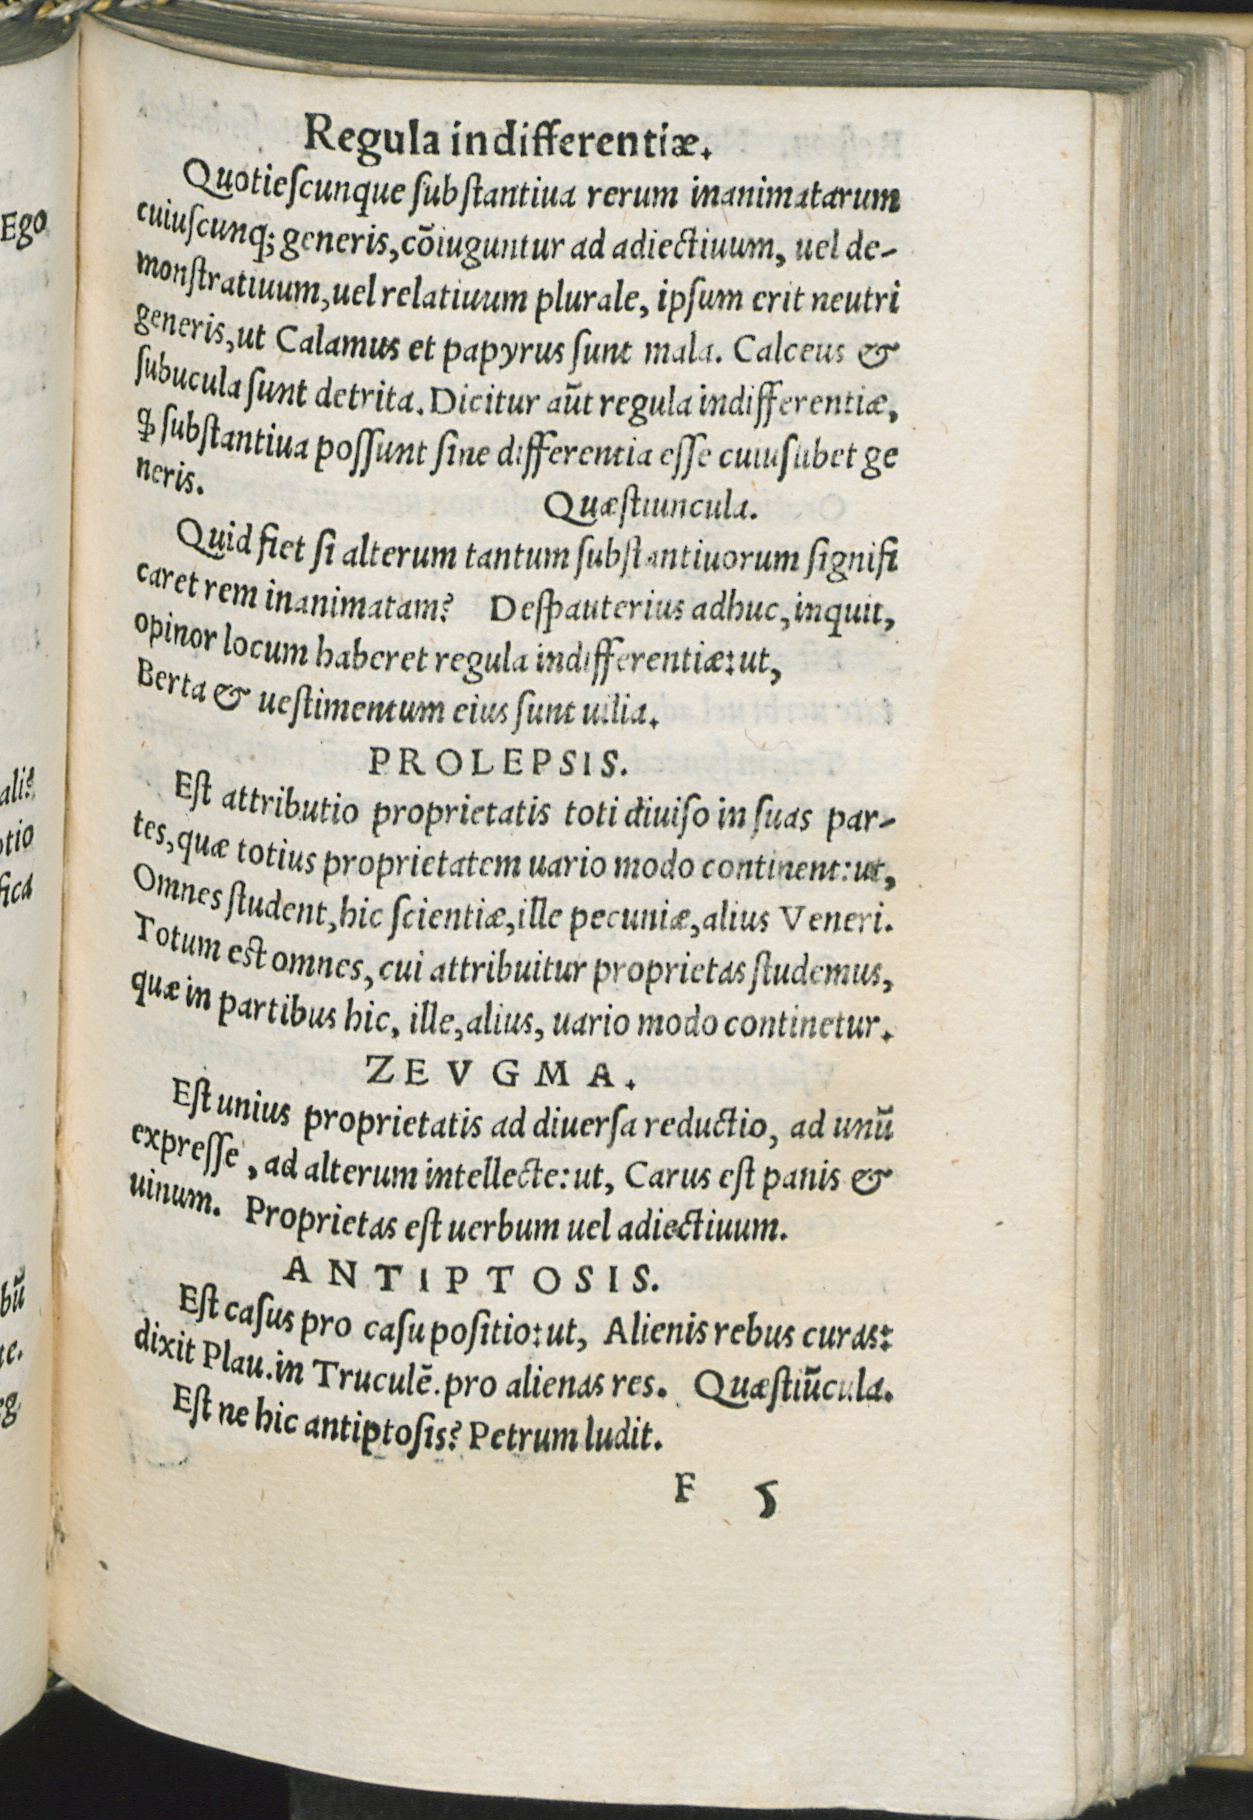 Regula indifferentiæ.
Quotieſcunque ſubſtantiua rerum inanimatarum
cuiuſcunq; generis, cõiuguntur ad adiectiuum, uel de-
monſtratiuum, uel relatiuum plurale, ipſum erit neutri
generis, ut Calamus et papyrus ſunt mala. Calceus &
ſubucula ſunt detrita. Dicitur aũt regula indifferentiæ,
ꝙ ſubſtantiua poſſunt ſine differentia eſſe cuiuſlibet ge
neris.
Quæſtiuncula.
Quid fiet ſi alterum tantum ſubſtantiuorum ſignifi
caret rem inanimatam? Deſpauterius adhuc, inquit,
opinor locum haberet regula indifferentiæ: ut,
Berta & ueſtimentum eius ſunt uilia.
PROLEPSIS.
Eſt attributio proprietatis toti diuiſo in ſuas par-
tes, quæ totius proprietatem uario modo continent: ut,
Omnes ſtudent, hic ſcientiæ, ille pecuniæ, alius Veneri.
Totum est omnes, cui attribuitur proprietas ſtudemus,
quæ in partibus hic, ille, alius, uario modo continetur.
ZEVGMA.
Eſt unius proprietatis ad diuerſa reductio, ad unũ
expreſſe, ad alterum intellecte: ut, Carus eſt panis &
uinum. Proprietas eſt uerbum uel adiectiuum.
ANTIPTOSIS.
Eſt caſus pro caſu poſitio: ut, Alienis rebus curas:
dixit Plau. in Truculẽ. pro alienas res. Quæſtiũcula.
Eſt ne hic antiptoſis? Petrum ludit.
F 5
Ego